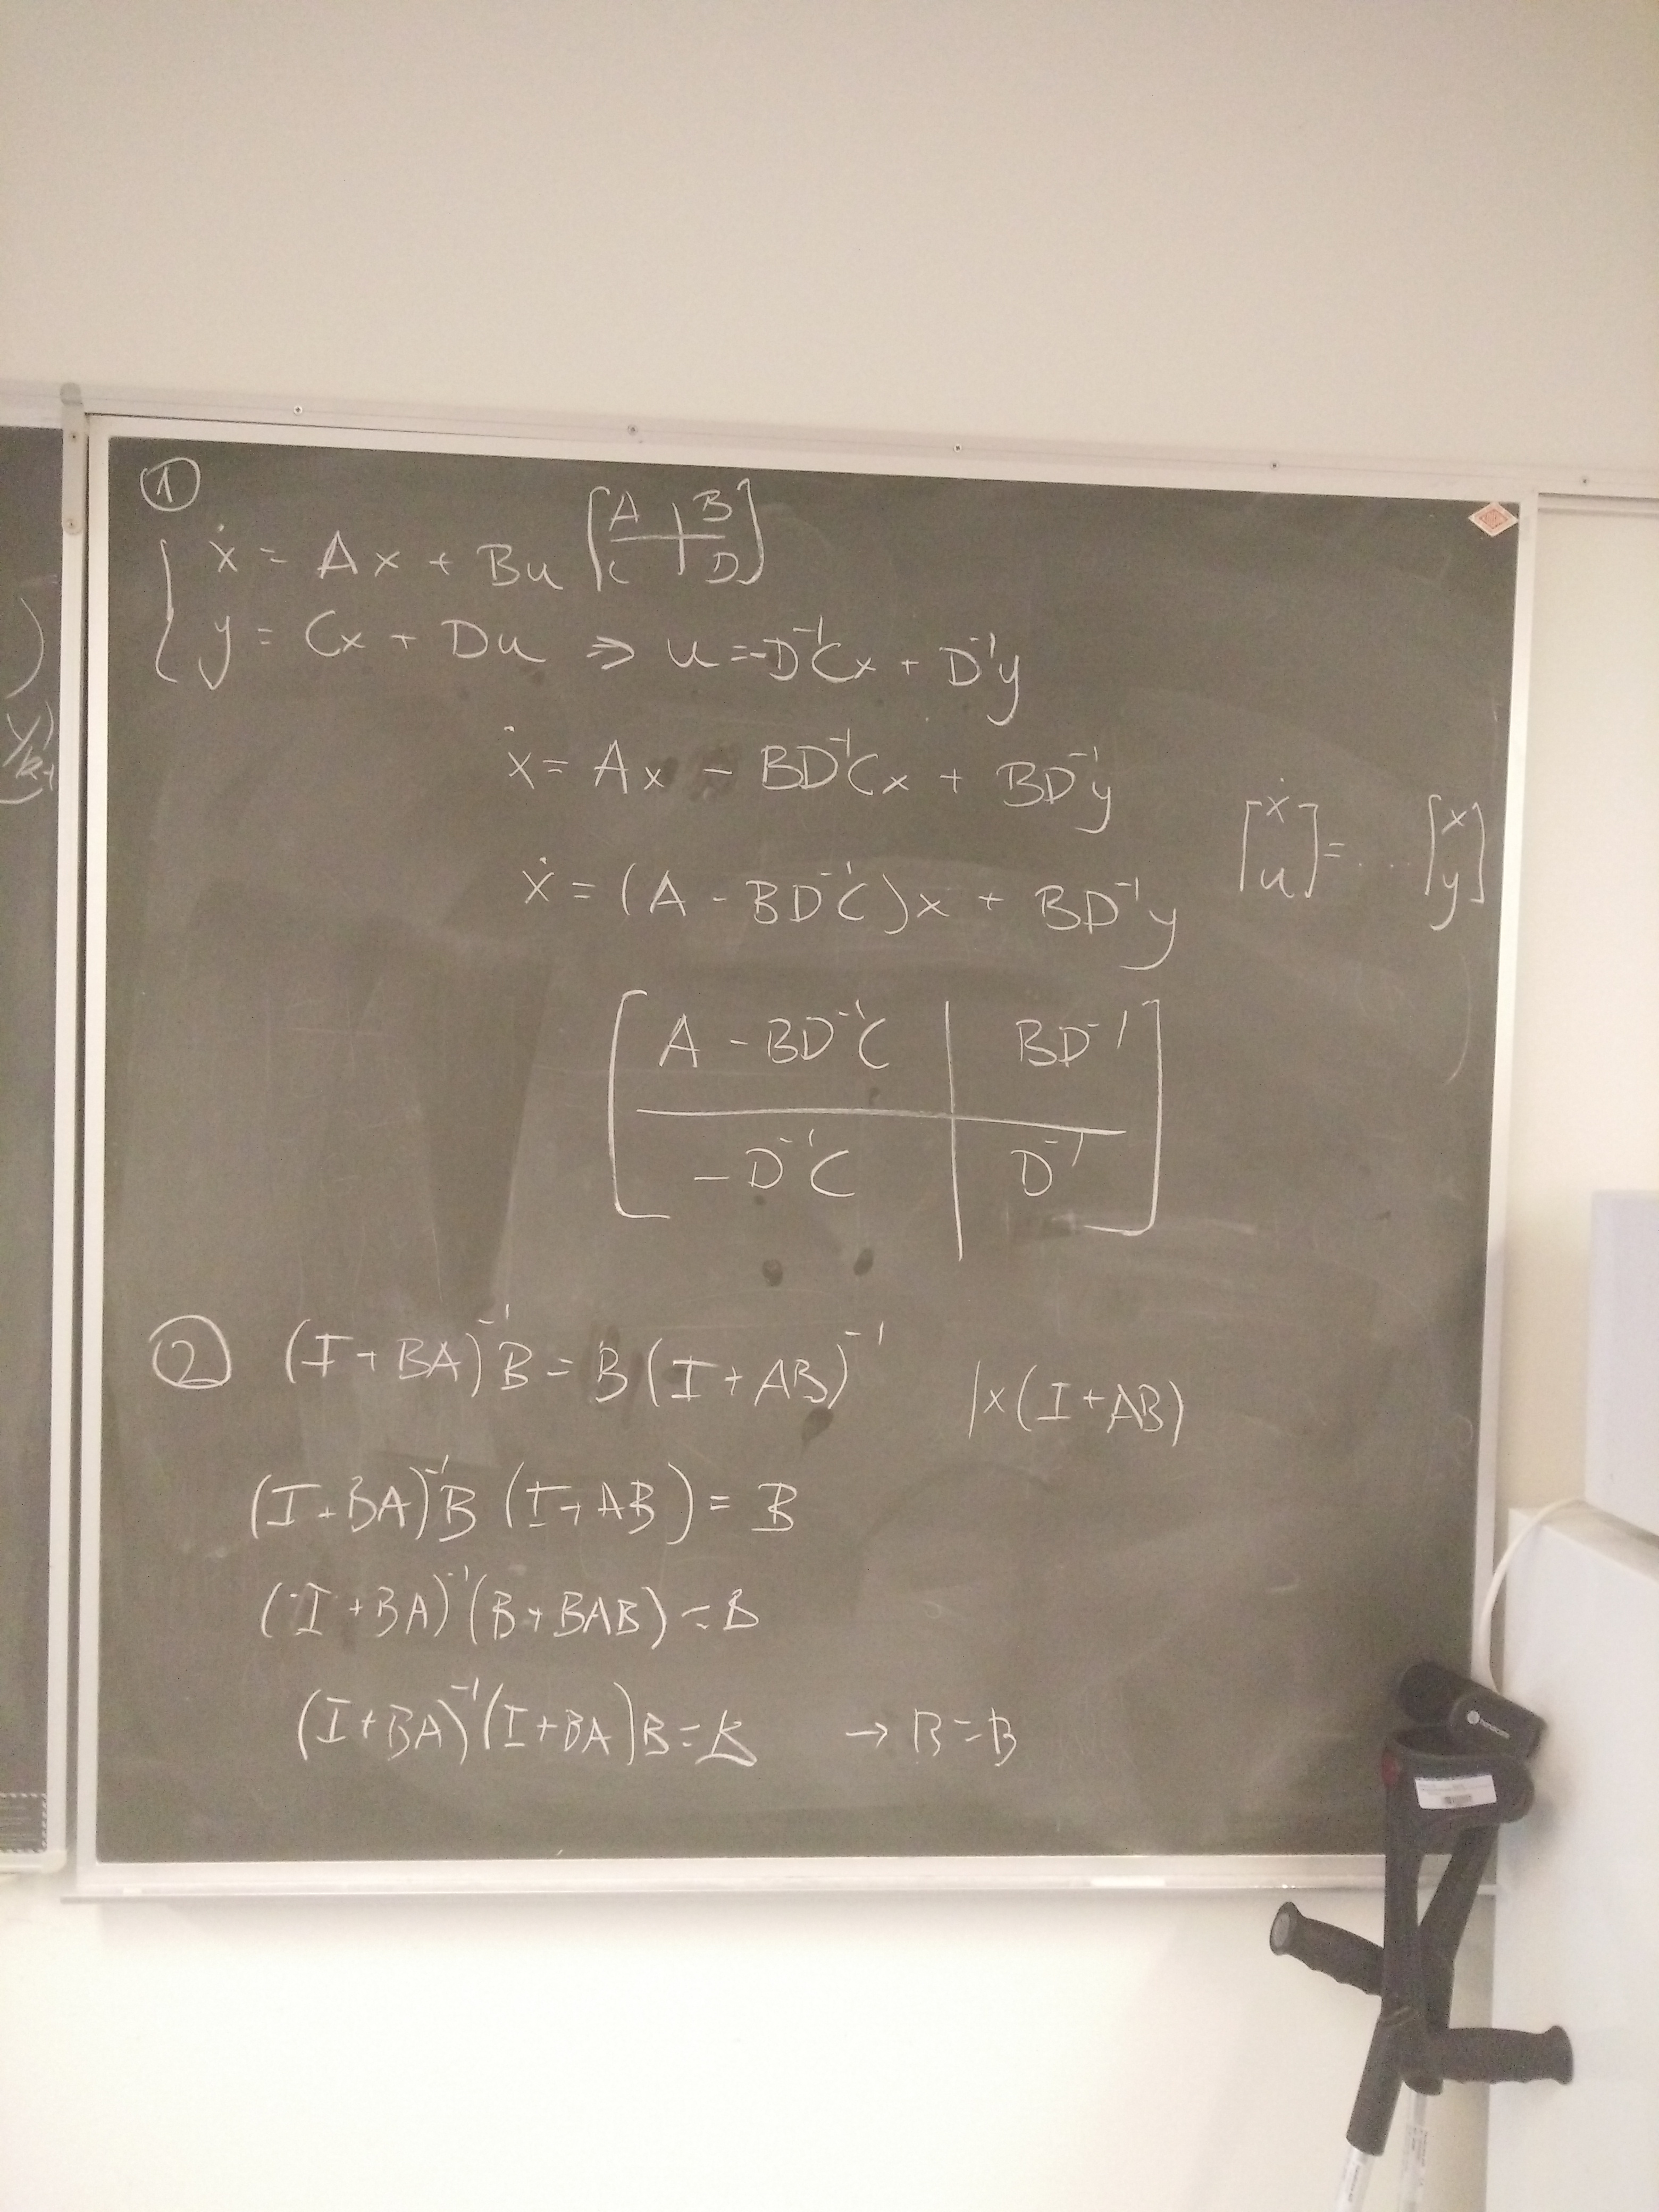 ①
ẋ = Ax + Bu [A B
C D]
y = Cx + Du ⇒ u = -D⁻¹Cx + D⁻¹y
ẋ = Ax - BD⁻¹Cx + BD⁻¹y
ẋ = (A - BD⁻¹C)x + BD⁻¹y
[ẋ
u] = ... [x
y]
[A - BD⁻¹C | BD⁻¹
-D⁻¹C | D⁻¹]
② (I + BA)⁻¹B = B(I + AB)⁻¹ |x(I + AB)
(I + BA)⁻¹B (I + AB) = B
(I + BA)⁻¹(B + BAB) = B
(I + BA)⁻¹(I + BA)B = B → B = B